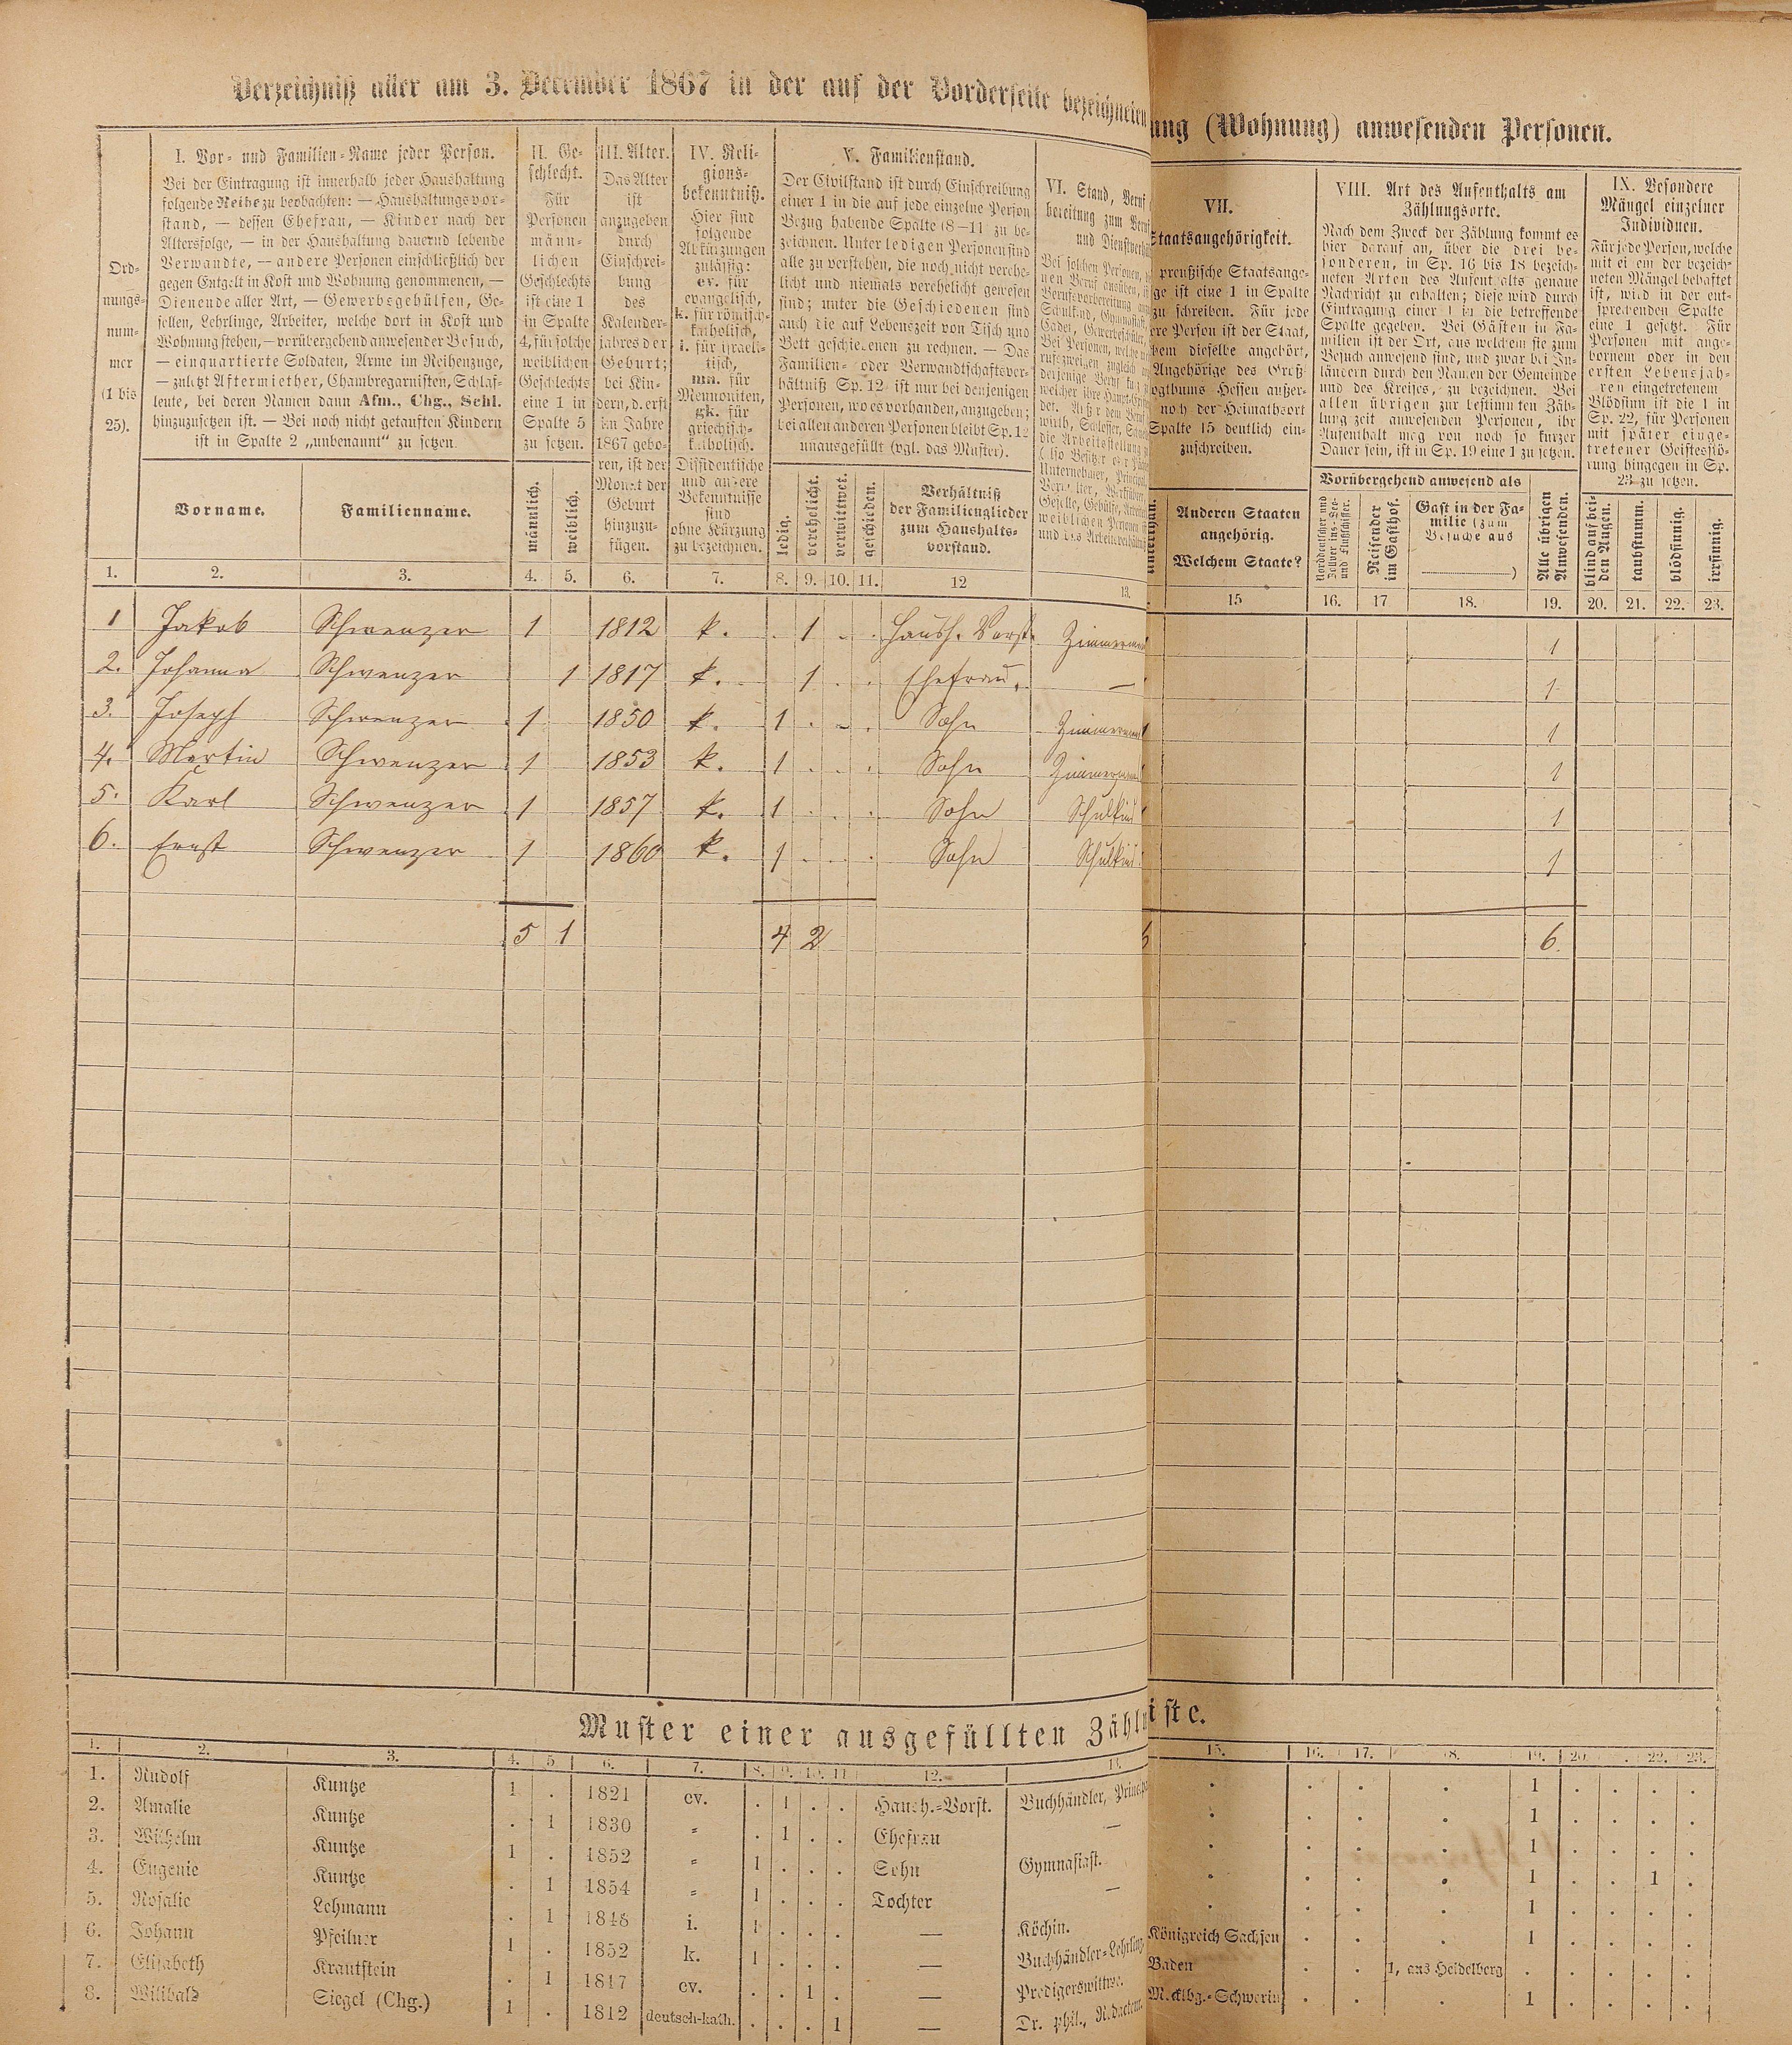 Verzeichniß aller am 3. December 1867 in der auf der Vorderseite bezeichneten
ung (Wohnung) anwesenden Personen.
Ord-
nungs-
num-
mer
(1 bis
25).
I. Vor- und Familien-Name jeder Person.
Bei der Eintragung ist innerhalb jeder Haushaltung
folgende Reihe zu beobachten: — Haushaltungsvor-
stand, — dessen Ehefrau, — Kinder nach der
Altersfolge, — in der Haushaltung dauernd lebende
Verwandte, — andere Personen einschließlich der
gegen Entgelt in Kost und Wohnung genommenen, —
Dienende aller Art, — Gewerbsgehülfen, Ge-
sellen, Lehrlinge, Arbeiter, welche dort in Kost und
Wohnung stehen, — vorübergehend anwesender Besuch,
— einquartierte Soldaten, Arme im Reihenzuge,
— zuletzt Aftermiether, Chambregarnisten, Schlaf-
leute, bei deren Namen dann Afm., Chg., Schl.
hinzuzusetzen ist. — Bei noch nicht getauften Kindern
ist in Spalte 2 „unbenannt“ zu setzen.
Vorname.
Familienname.
II. Ge-
schlecht.
Für
Personen
männ-
lichen
Geschlechts
ist eine 1
in Spalte
4, für solche
weiblichen
Geschlechts
eine 1 in
Spalte 5
zu setzen.
männlich.
weiblich.
III. Alter.
Das Alter
ist
anzugeben
durch
Einschrei-
bung
des
Kalender-
jahres der
Geburt;
bei Kin-
dern, d. erst
im Jahre
1867 gebo-
ren, ist der
Monat der
Geburt
hinzuzu-
fügen.
IV. Reli-
gions-
bekenntniß.
Hier sind
folgende
Abkürzungen
zulässig:
ev. für
evangelisch,
k. für römisch-
katholisch,
i. für israeli-
tisch,
mn. für
Mennoniten,
gk. für
griechisch-
katholisch.
Dissidentische
und andere
Bekenntnisse
sind
ohne Kürzung
zu bezeichnen.
V. Familienstand.
Der Civilstand ist durch Einschreibung
einer 1 in die auf jede einzelne Person
Bezug habende Spalte (8—11) zu be-
zeichnen. Unter ledigen Personen sind
alle zu verstehen, die noch nicht verehe-
licht und niemals verehelicht gewesen
sind; unter die Geschiedenen sind
auch die auf Lebenszeit von Tisch und
Bett geschiedenen zu rechnen. — Das
Familien- oder Verwandtschaftsver-
hältniß Sp. 12 ist nur bei denjenigen
Personen, wo es vorhanden, anzugeben;
bei allen anderen Personen bleibt Sp. 12
unausgefüllt (vgl. das Muster).
ledig.
verehelicht.
verwittwet.
geschieden.
Verhältniß
der Familienglieder
zum Haushalts-
vorstand.
VI. Stand, Beruf
bereitung zum Beruf
und Dienstverhäl
VII.
Staatsangehörigkeit.
preußische Staatsange-
ge ist eine 1 in Spalte
zu schreiben. Für jede
ere Person ist der Staat,
dem dieselbe angehört,
Angehörige des Groß-
ogthums Hessen außer-
noch der Heimathsort
Spalte 15 deutlich ein-
zuschreiben.
Anderen Staaten
angehörig.
Welchem Staate?
VIII. Art des Aufenthalts am
Zählungsorte.
Nach dem Zweck der Zählung kommt es
hier darauf an, über die drei be-
sonderen, in Sp. 16 bis 18 bezeich-
neten Arten des Aufenthalts genaue
Nachricht zu erhalten; diese wird durch
Eintragung einer 1 in die betreffende
Spalte gegeben. Bei Gästen in Fa-
milien ist der Ort, aus welchem sie zum
Besuch anwesend sind, und zwar bei In-
ländern durch den Namen der Gemeinde
und des Kreises, zu bezeichnen. Bei
allen übrigen zur bestimmten Zäh-
lungszeit anwesenden Personen, ihr
Aufenthalt mag von noch so kurzer
Dauer sein, ist in Sp. 19 eine 1 zu setzen.
Vorübergehend anwesend als
Norddeutscher und
Zollvereins-See-
und Flußschiffer.
Reisender
im Gasthof.
Gast in der Fa-
milie (zum
Besuche aus
)
Alle übrigen
Anwesenden.
IX. Besondere
Mängel einzelner
Individuen.
Für jede Person, welche
mit einem der bezeich-
neten Mängel behaftet
ist, wird in der ent-
sprechenden Spalte
eine 1 gesetzt. Für
Personen mit ange-
bornem oder in den
ersten Lebensjah-
ren eingetretenem
Blödsinn ist die 1 in
Sp. 22, für Personen
mit später einge-
tretener Geistesstö-
rung hingegen in Sp.
23 zu setzen.
blind auf bei-
den Augen.
taubstumm.
blödsinnig.
irrsinnig.
1. 2. 3. 4. 5. 6. 7. 8. 9. 10. 11. 12 13. 15 16. 17 18. 19. 20. 21. 22. 23.
1 Jakob Schwenzer 1 1812 k. . 1 . . Haush. Vorst. Zimmerman 1
2. Johanna Schwenzer 1 1817 k. 1 . . Ehefrau. — 1
3. Joseph Schwenzer 1 1850 k. 1 . . . Sohn Zimmerman 1
4. Martin Schwenzer 1 1853 k. 1 . . . Sohn Zimmerman 1
5. Karl Schwenzer 1 1857 k. 1 . . . Sohn Schulkind 1
6. Ernst Schwenzer 1 1860 k. 1 . . . Sohn Schulkind 1
5 1 4 2 6 6.
Muster einer ausgefüllten Zähl
iste.
1. 2. 3. 4. 5 6. 7. 8. 9. 10. 11 12. 13. 15. 16. 17. 18. 19. 20 . 22. 23.
1. Rudolf Kuntze 1 . 1821 ev. . 1 . . Haush.-Vorst. Buchhändler, Prinzipa . . . . 1 . . . .
2. Amalie Kuntze . 1 1830 „ . 1 . . Ehefrau — . . . . 1 . . . .
3. Wilhelm Kuntze 1 . 1852 „ 1 . . . Sohn Gymnasiast. . . . . 1 . . . .
4. Eugenie Kuntze . 1 1854 „ 1 . . . Tochter — . . . . 1 . . 1 .
5. Rosalie Lehmann . 1 1848 i. 1 . . . — Köchin. . . . . 1 . . . .
6. Johann Pfeilner 1 . 1852 k. 1 . . . — Buchhändler-Lehrling Königreich Sachsen . . . 1 . . . .
7. Elisabeth Krautstein . 1 1817 ev. . . 1 . — Predigerswittwe. Baden . . 1, aus Heidelberg . . . . .
8. Wilibald Siegel (Chg.) 1 . 1812 deutsch-kath. . . . 1 — Dr. phil., Redacteur. Mecklbg.-Schwerin . . . 1 . . . .